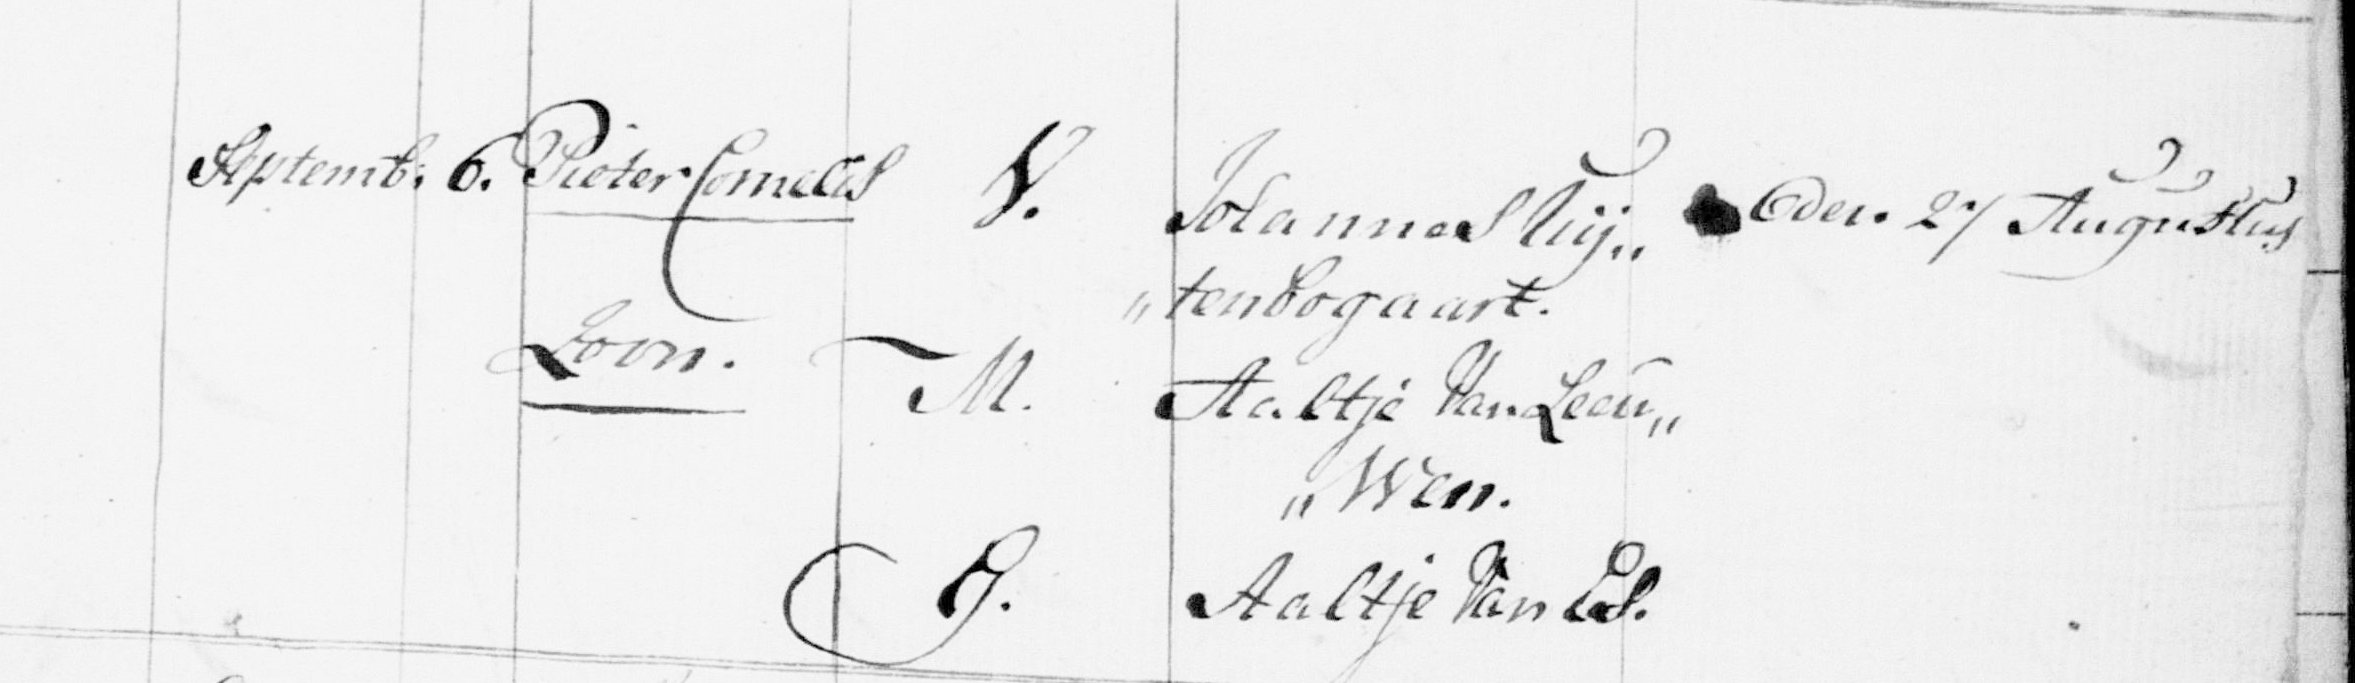 Septemb: 6. Pieter Cornelis V. Johannes Uÿ„ den 27 Augustus
„tenbogaart.
Zoon. M. Aaltje Van Leeu„
„Wen.
G. Aaltje Van Es.